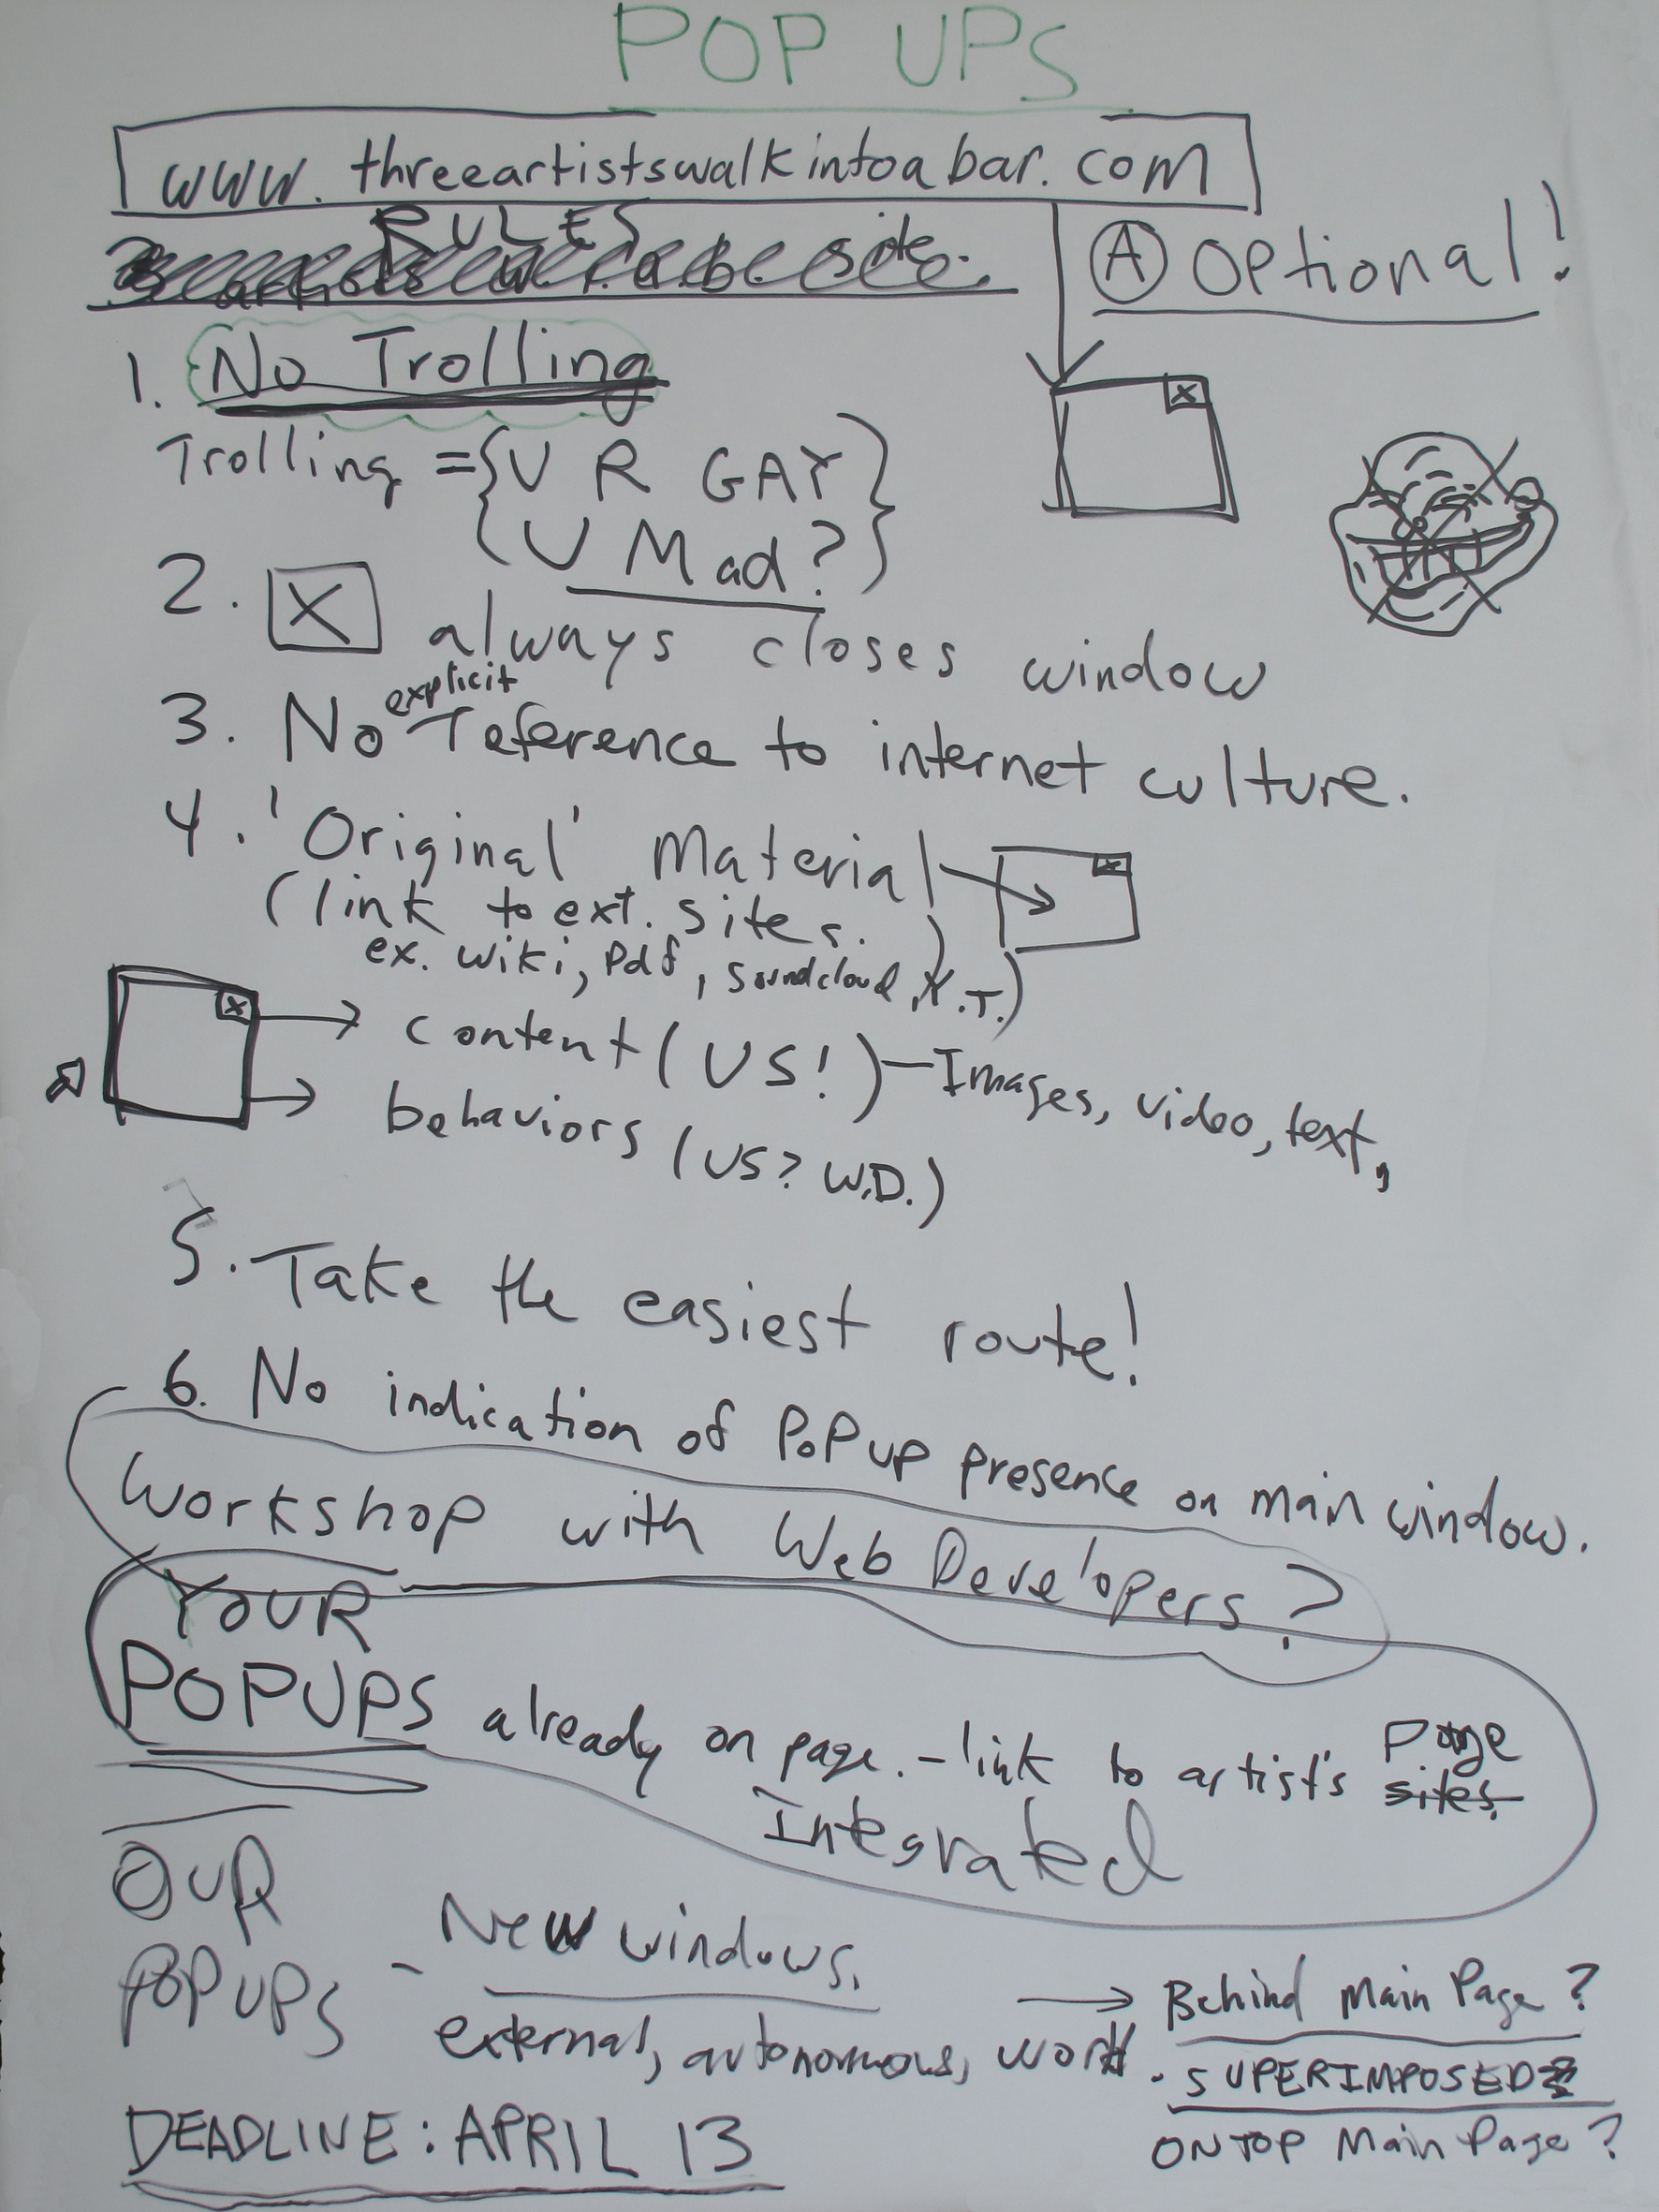 POP UPS
www.threeartistswalkintoabar.com
RULES
site.
A Optional!
1. No Trolling
Trolling = {U R GAY
U Mad?}
2. X always closes window
explicit
3. No reference to internet culture.
4. 'Original' Material
(link to ext. sites.)
ex. wiki, pdf, soundcloud, Y.T.)
content (US!) — Images, video, text,
behaviors (US? W.D.)
5. Take the easiest route!
6. No indication of PoPup presence on main window.
Workshop with Web Developers?
YOUR
POPUPS already on page. - link to artist's page
sites.
Integrated
OUR
POPUPS - New windows.
external, autonomous, work.
→ Behind Main Page?
SUPERIMPOSED
ON TOP Main Page?
DEADLINE: APRIL 13